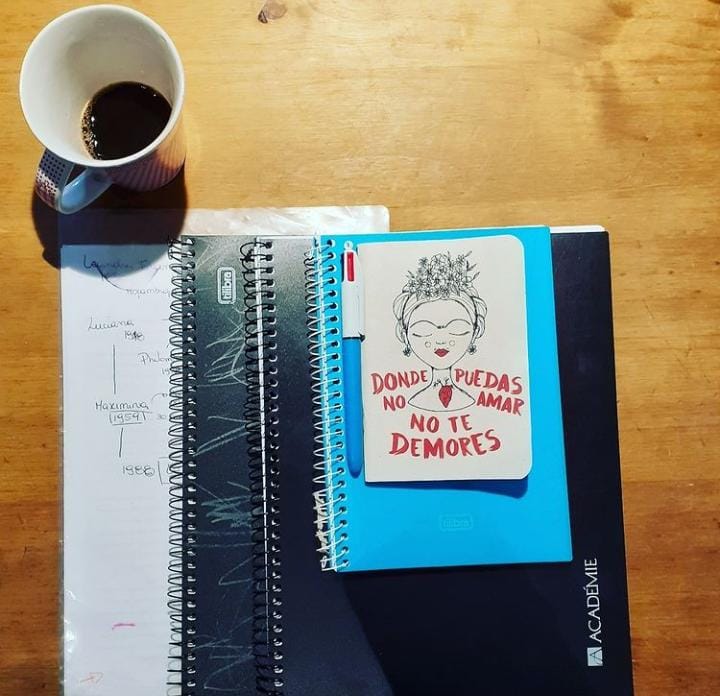 Luciana
Maximina
1959
1988
tilibra
DONDE PUEDAS
NO AMAR
NO TE
DEMORES
tilibra
ACADÉMIE